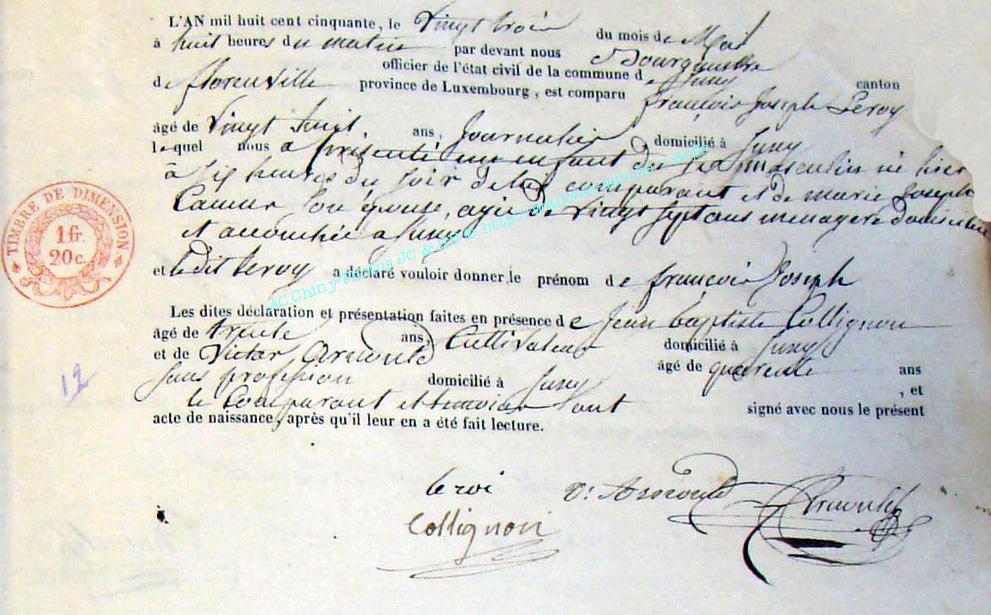 L'AN mil huit cent cinquante, le Vingt trois du mois de Mai
à huit heures du matin par devant nous Bourgmestre
officier de l'état civil de la commune de Juny canton
de florenville province de Luxembourg, est comparu françois Joseph Leroy
âgé de Vingt huit ans, Journalier domicilié à Juny
lequel nous a présenté un enfant du sexe masculin né hier
à six heures du soir de lui comparant et de marie Joseph
Camus son épouse, agée de Vingt sept ans menagere domiciliée
et accouchée a Juny
et ledit Leroy a déclaré vouloir donner le prénom de françois Joseph
Les dites déclaration et présentation faites en présence de Jean baptiste Collignon
âgé de trente ans, Cultivateur domicilié à Juny
et de Victor Arnould âgé de quarente ans
sans profession domicilié à Juny , et
le Comparant et temoins sont signé avec nous le présent
acte de naissance, après qu'il leur en a été fait lecture.
TIMBRE DE DIMENSION
1 fr.
20 c.
12
le roi V. Arnould
Collignon